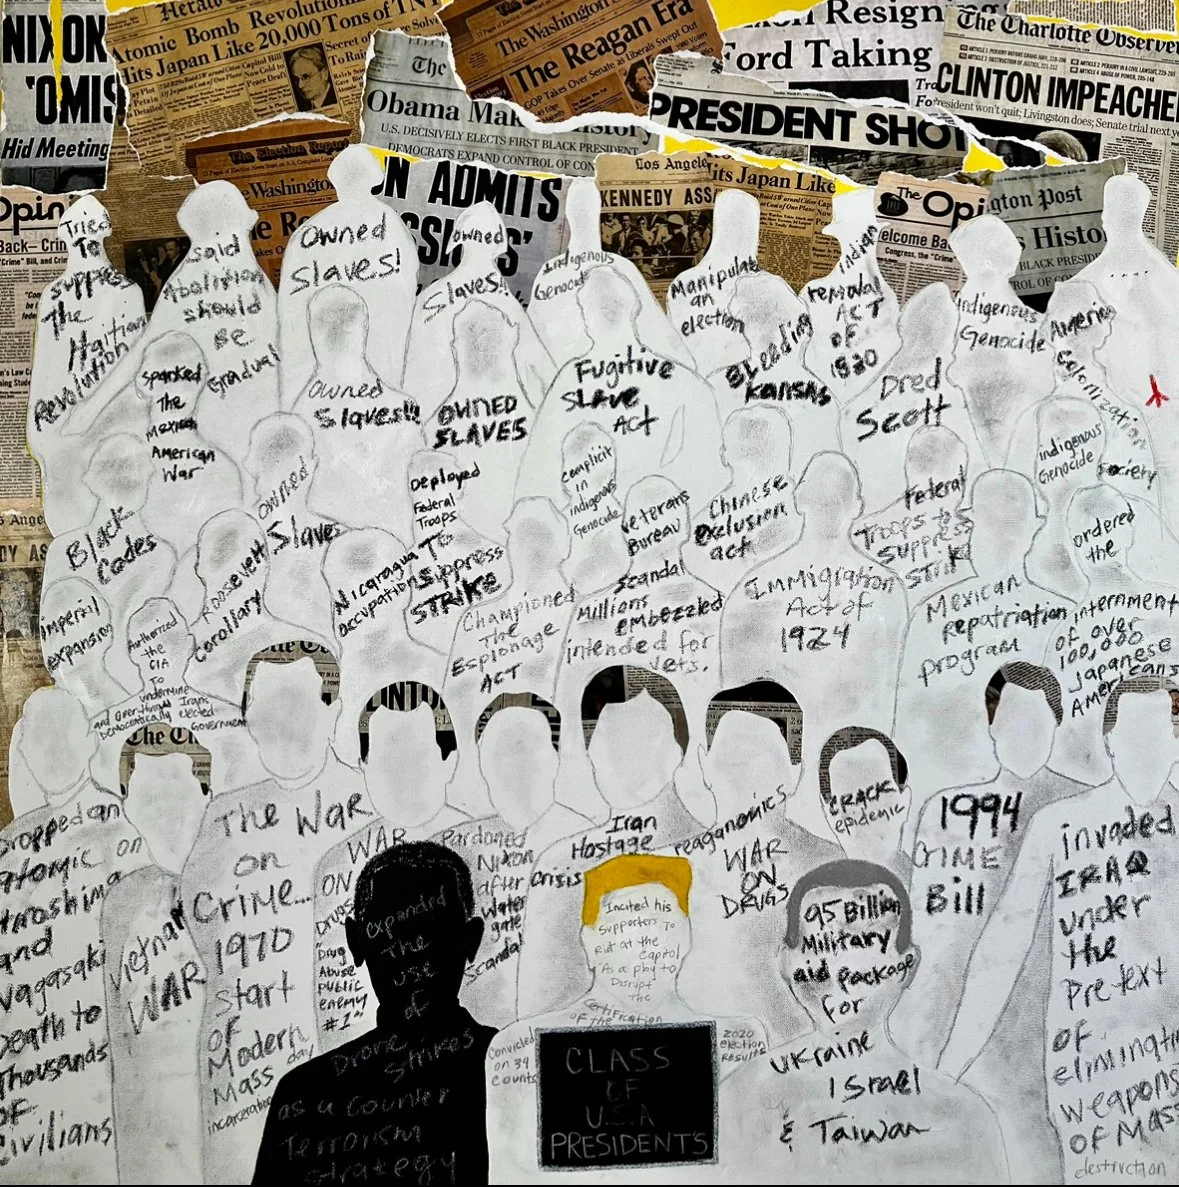 NIXON
'OMIS
Hid Meeting
Herald
Atomic Bomb Revolution
Hits Japan Like 20,000 Tons of TNT
The Washington
The Reagan Era
GOP Takes Over Senate as Liberals Swept Out
Resign
Ford Taking
The Charlotte Observer
CLINTON IMPEACHE
President won't quit; Livingston does; Senate trial next y
The
Obama Mak
istory
U.S. DECISIVELY ELECTS FIRST BLACK PRESIDENT
DEMOCRATS EXPAND CONTROL OF CON
PRESIDENT SHOT
The Election Report
e Washington
he R
N ADMITS
SSL
S'
Los Angele
KENNEDY ASSA
its Japan Like
The
Opi
elcome Ba
Congress, the "Crime"
gton Post
s Histo
BLACK PRESIDENT
ROL OF CO
Opin
Back— Crim
"Crime" Bill, and Cri
Tried
To
suppress
The
Haitian
Revolution
Said
Abolition
should
BE
Gradual
Owned
slaves!
owned
Slaves!
Indigenous
Genocide
Manipulat
an
election
Indian
removal
ACT
OF
1830
indigenous
Genocide
....
sparked
The
Mexican
American
War
Owned
Slaves!!
OWNED
SLAVES
Fugitive
SLAVE
ACT
Bleeding
Kansas
Dred
Scott
America
Colonization
Society
Black
Codes
owned
Slaves
Deployed
Federal
Troops
To
suppress
STRIKE
complicit
in
indigenous
Genocide
Chinese
exclusion
act
Federal
Troops to
suppress
strik
indigenous
Genocide
imperial
expansion
Roosevelt
corollary
Nicaragua
occupation
Championed
The
Espionage
ACT
veterans
Bureau
scandal
millions
embezzled
intended for
vets.
IMMIGRATION
Act of
1924
Mexican
repatriation
program
ordered
the
internment
of over
100,000
Japanese
Americans
Authorized
the
CIA
To
undermine
and overthrow Irans
Democratically elected
Government
The C
Dropped an
atomic on
Hiroshima
and
Nagasaki
Death to
Thousands
OF
Civilians
Vietnam
WAR
The WAR
on
Crime...
1970
start
OF
Modern
day
Mass
incarceration
WAR
ON
Drugs
"Drug
Abuse
public
enemy
#1"
Pardoned
Nixon
after
Water
gate
Scandal
Iran
Hostage
crisis
reaganomics
WAR
ON
DRUGS
CRACK
epidemic
1994
CRIME
Bill
invaded
IRAQ
under
the
Pretext
OF
eliminati
weapons
OF Mass
destruction
expanded
The
use
OF
Drone strikes
as a counter
Terrorism
strategy
Incited his
supporters To
Riot at the
Capitol
As a ploy to
Disrupt
the
Certification
of the
2020
election
RESULTS
Convicted
on 34
counts
95 Billion
Military
aid package
for
Ukraine
Israel
& Taiwan
CLASS
OF
U.S.A
PRESIDENTS